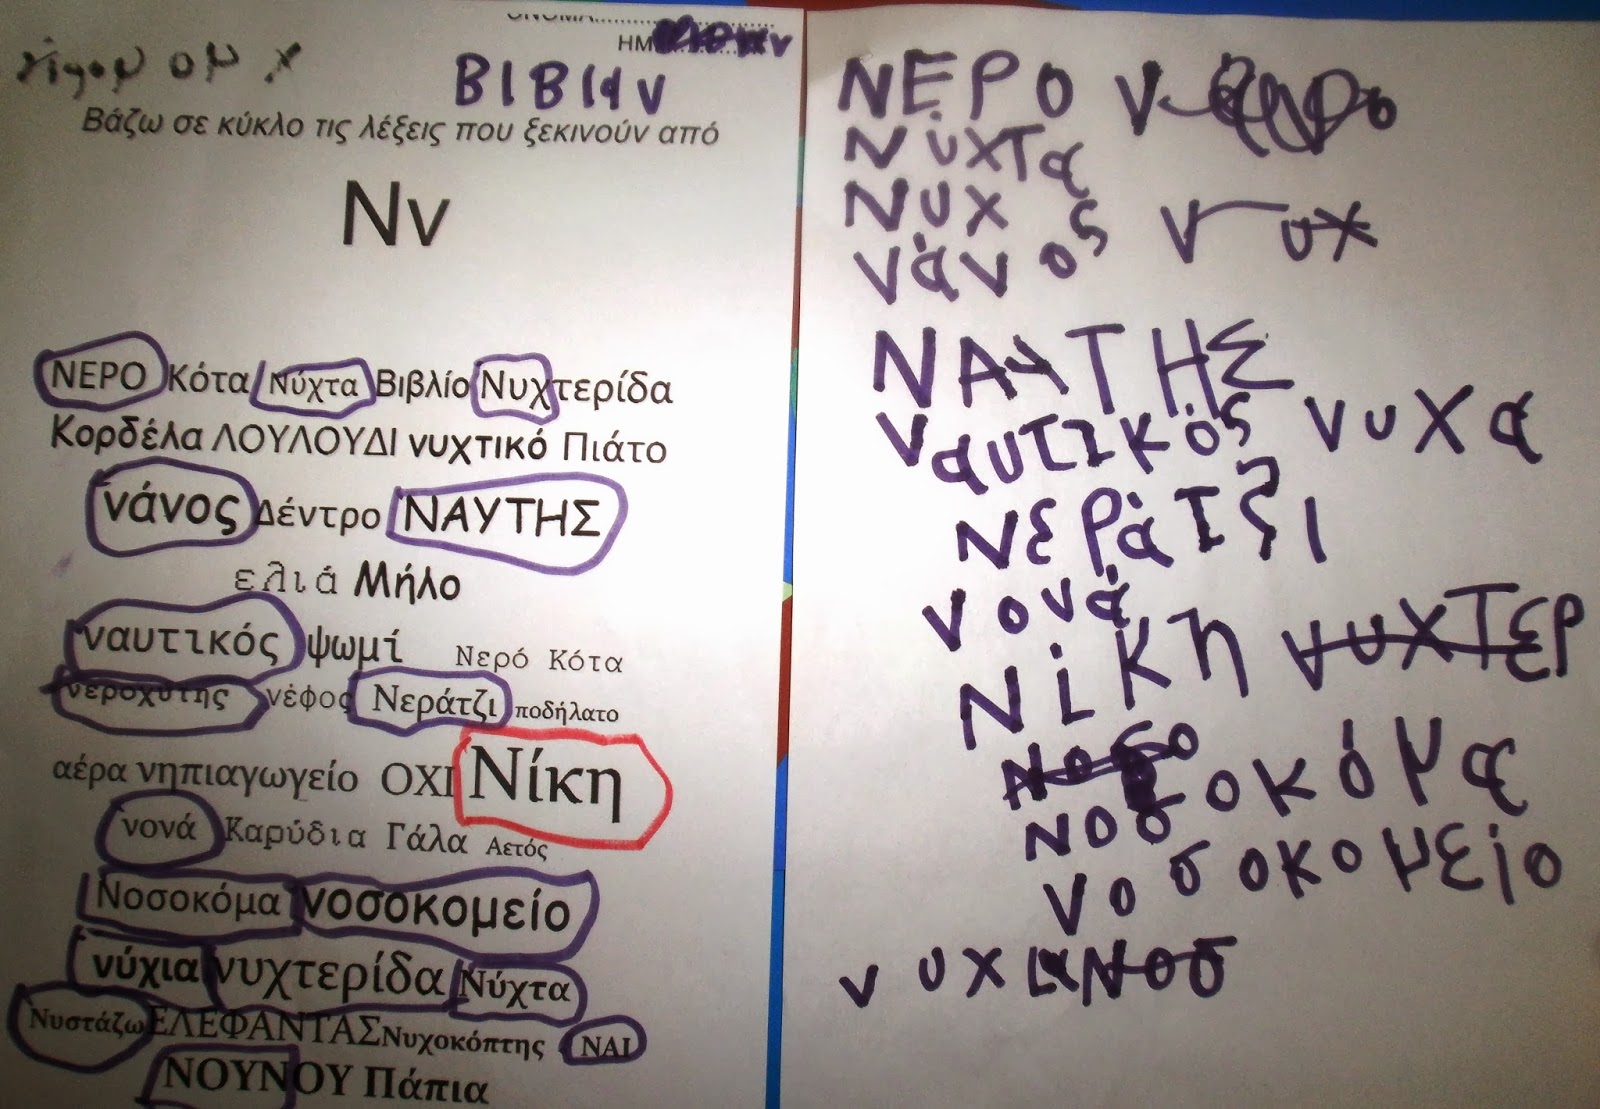 ΟΝΟΜΑ..............................
ΗΜ
ΒΙΒΙαν
Βάζω σε κύκλο τις λέξεις που ξεκινούν από
Νν
ΝΕΡΟ Κότα Νύχτα Βιβλίο Νυχτερίδα
Κορδέλα ΛΟΥΛΟΥΔΙ νυχτικό Πιάτο
νάνος Δέντρο ΝΑΥΤΗΣ
ελιά Μήλο
ναυτικός ψωμί Νερό Κότα
νεροχύτης νέφος Νεράτζι ποδήλατο
αέρα νηπιαγωγείο ΟΧΙ Νίκη
νονά Καρύδια Γάλα Αετός
Νοσοκόμα νοσοκομείο
νύχια νυχτερίδα Νύχτα
Νυστάζω ΕΛΕΦΑΝΤΑΣ Νυχοκόπτης ΝΑΙ
ΝΟΥΝΟΥ Πάπια
ΝΕΡΟ
Νύχτα
Νυχ
νάνος νυχ
ΝΑΥΤΗΣ
ναυτικός νυχα
Νεράτζι
νονά
Νίκη νυχΤΕΡ
νοσοκόμα
νοσοκομείο
νυχια